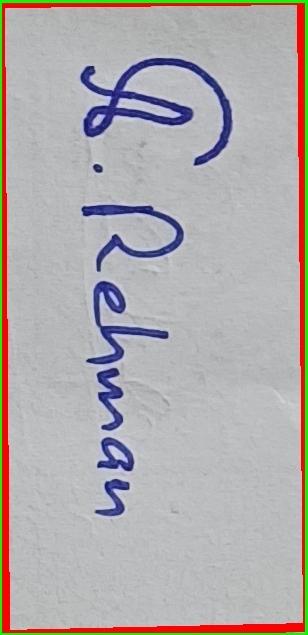 A. Rehman